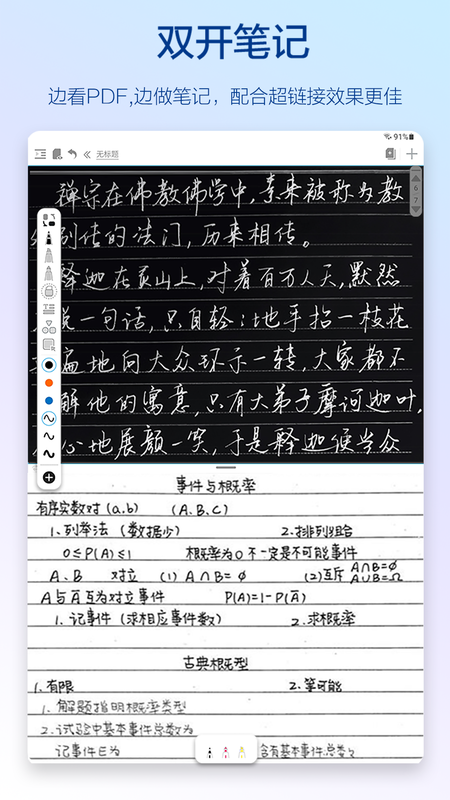 双开笔记
边看PDF,边做笔记，配合超链接效果更佳
91%
无标题
禅宗在佛教佛学中,素来被称为教
别传的法门,历来相传。
释迦在灵山上,对着百万人天,默然
说一句话,只自轻轻地手拈一枝花
遍地向大众环示一转,大家都不
解他的寓意,只有大弟子摩诃迦叶,
心地展颜一笑,于是释迦便当众
6
7
事件与概率
有序实数对(a,b) (A.B.C)
1.列举法(数据少) 2.排列组合
0≤P(A)≤1 概率为0不一定是不可能事件
A、B 对立 (1) A∩B=∅ (2)互斥 A∩B=∅
A∪B=Ω
A与Ā互为对立事件 P(A)=1-P(Ā)
1.记事件(求相应事件数) 2.求概率
古典概型
1.有限 2.等可能
1.解题指明概率类型
2.试验中基本事件总数为
记事件E为 含有基本事件总数